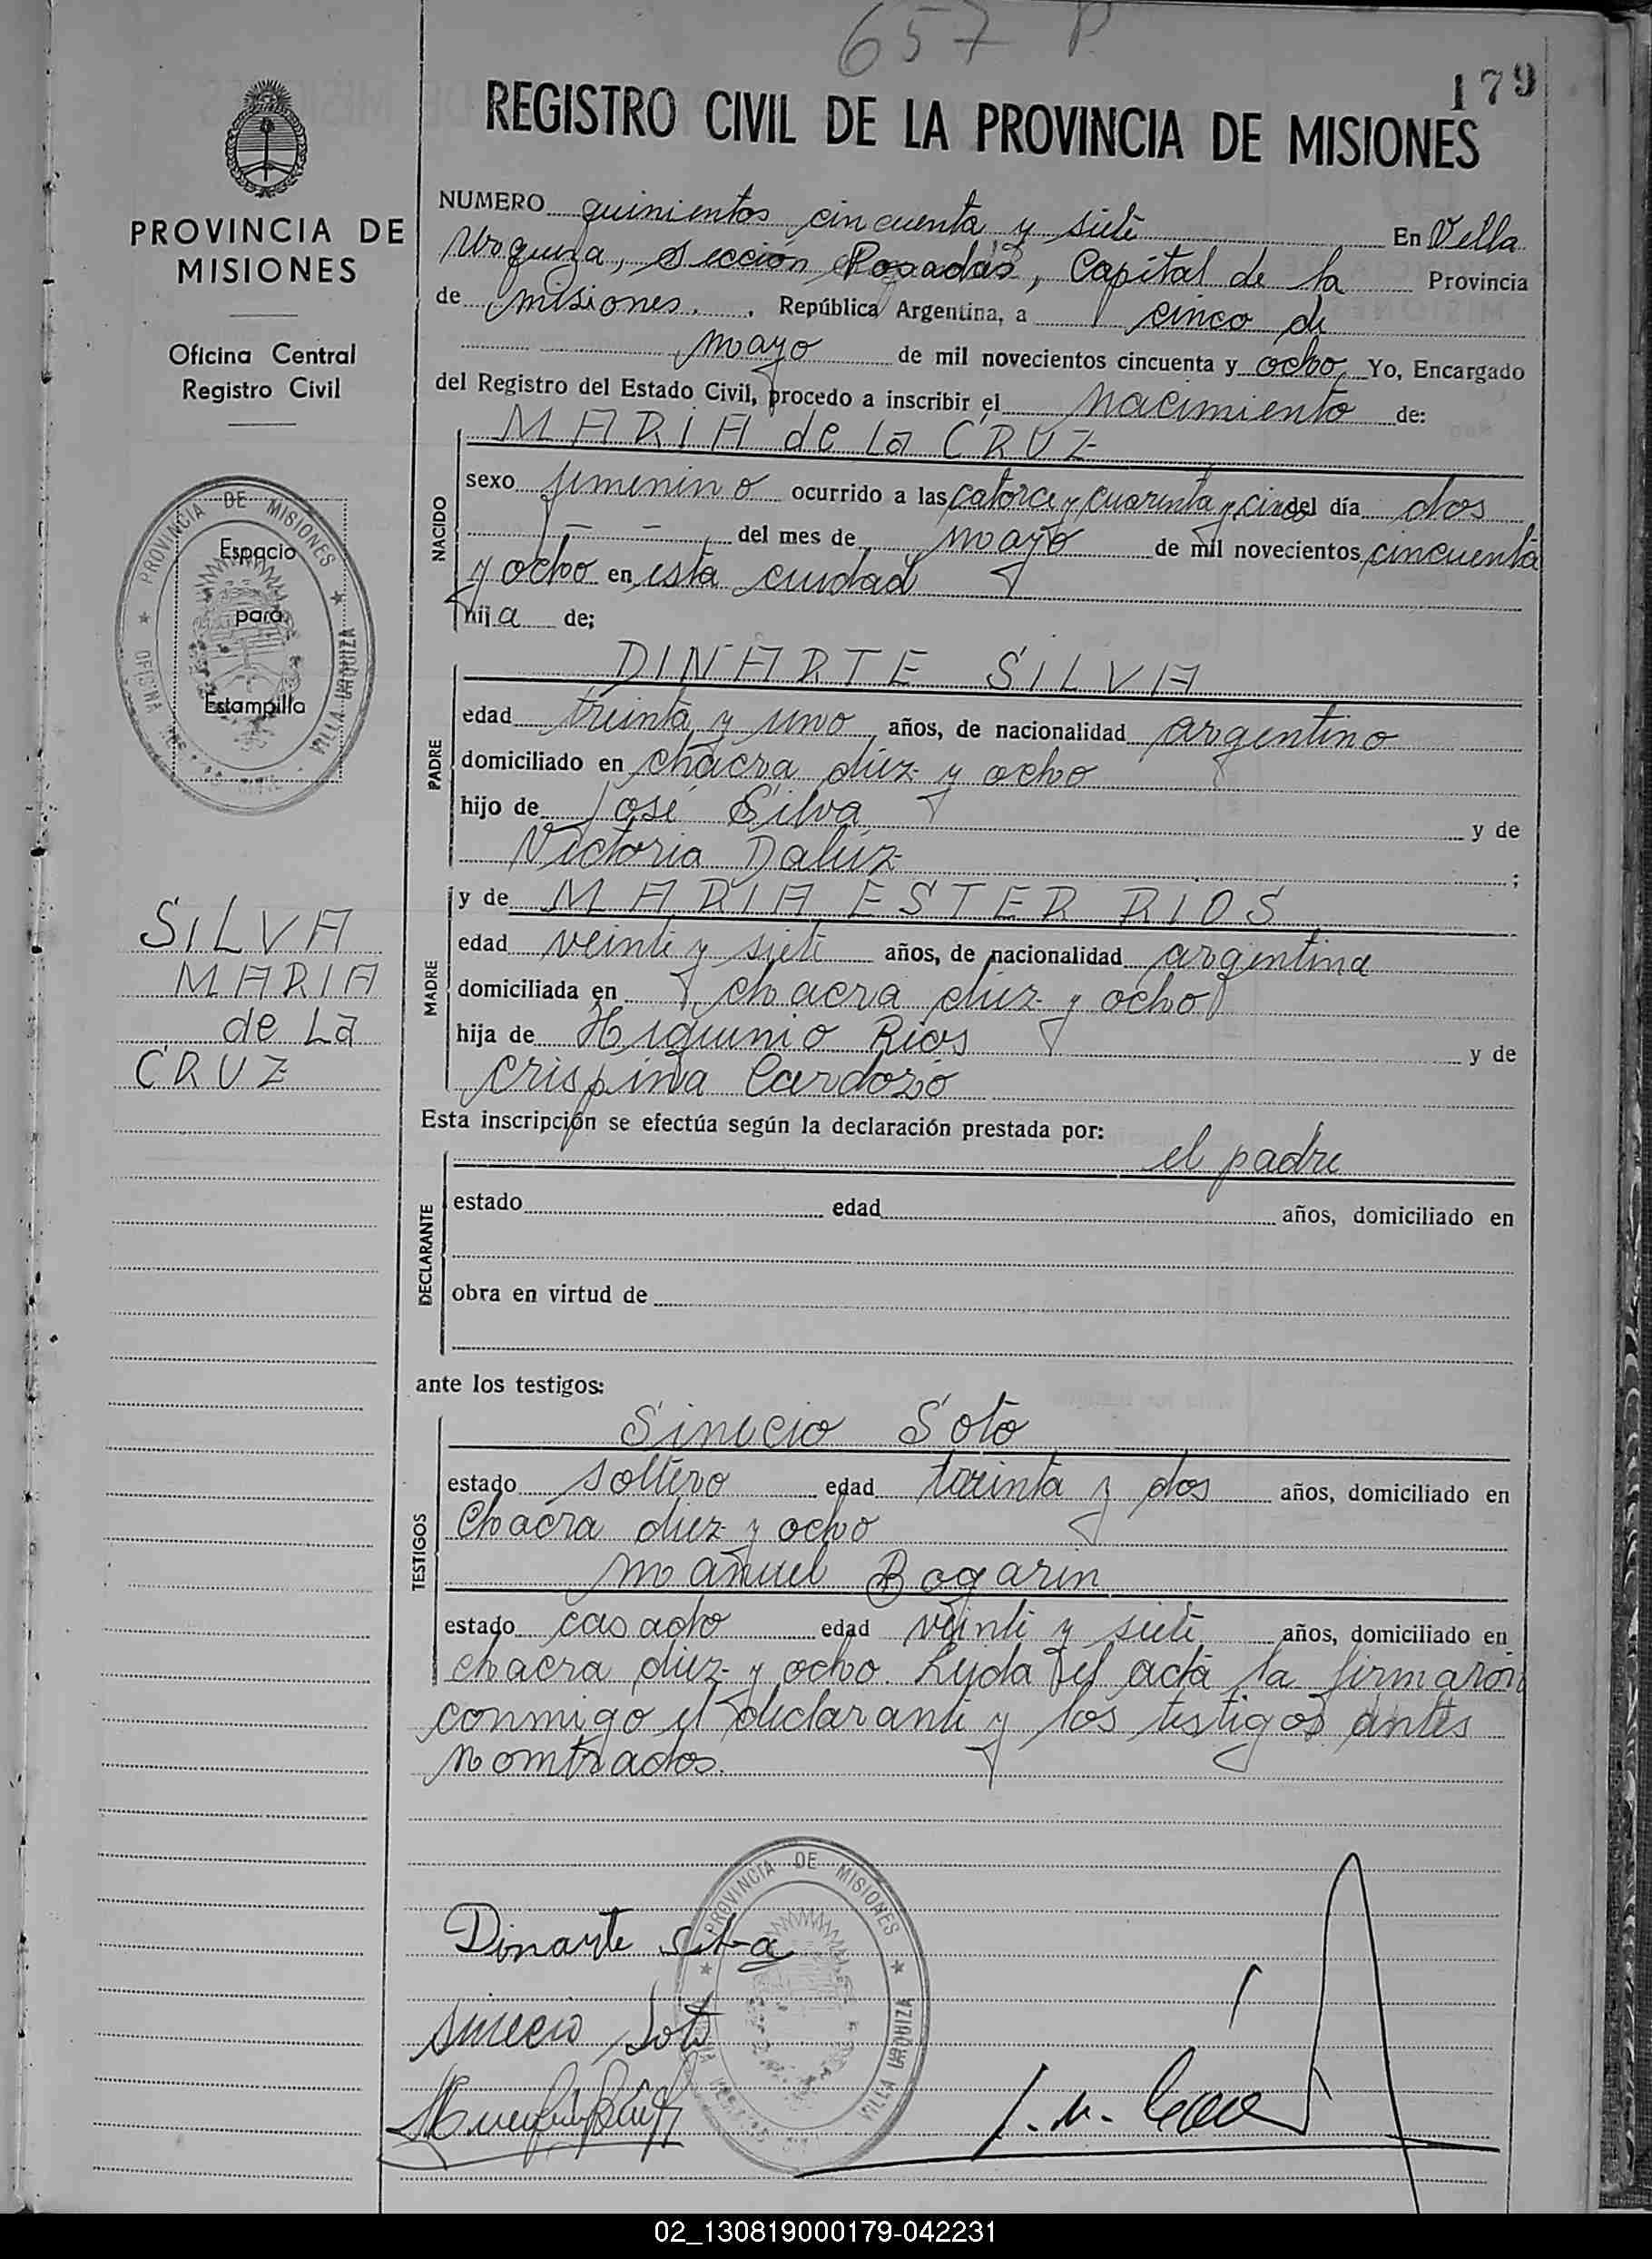 657 P
179
REGISTRO CIVIL DE LA PROVINCIA DE MISIONES
PROVINCIA DE
MISIONES
Oficina Central
Registro Civil
PROVINCIA DE MISIONES
Espacio
para
Estampilla
VILLA URQUIZA
SILVA
MARIA
de La
CRUZ
NUMERO quinientos cincuenta y siete En Villa
Urquiza, Sección Posadas, Capital de la Provincia
de misiones. República Argentina, a cinco de
mayo de mil novecientos cincuenta y ocho, Yo, Encargado
del Registro del Estado Civil, procedo a inscribir el nacimiento de:
NACIDO
MARIA de La CRUZ
sexo femenino ocurrido a las catorce y cuarenta y cinco del día dos
— — del mes de mayo de mil novecientos cincuenta
y ocho en esta ciudad
hija de;
PADRE
DINARTE SILVA
edad treinta y uno años, de nacionalidad argentino
domiciliado en chacra diez y ocho
hijo de José Silva y de
Victoria Daluz ;
MADRE
y de MARIA ESTER RIOS
edad veinte y siete años, de nacionalidad argentina
domiciliada en chacra diez y ocho
hija de Higuinio Rios y de
Crispina Cardozo
Esta inscripción se efectúa según la declaración prestada por:
DECLARANTE
el padre
estado edad años, domiciliado en
obra en virtud de
ante los testigos:
TESTIGOS
Sinecio Soto
estado soltero edad treinta y dos años, domiciliado en
Chacra diez y ocho
Manuel Bogarin
estado casado edad veinte y siete años, domiciliado en
chacra diez y ocho. Leyda el acta la firmaron
conmigo el declarante y los testigos antes
nombrados.
PROVINCIA DE MISIONES
VILLA URQUIZA
Dinarte Silva
Sinecio Soto
02_130819000179-042231